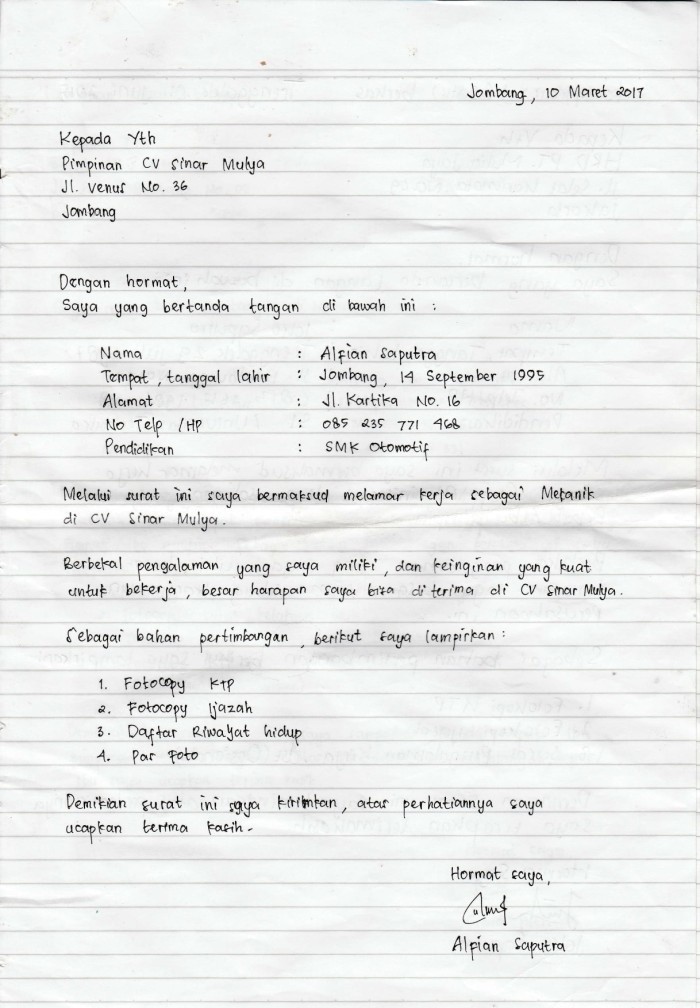 Jombang, 10 Maret 2017
Kepada Yth
Pimpinan CV Sinar Mulya
Jl. Venus No. 36
Jombang
Dengan hormat,
Saya yang bertanda tangan di bawah ini :
Nama : Alfian Saputra
Tempat, tanggal lahir : Jombang, 14 September 1995
Alamat : Jl. Kartika No. 16
No Telp /HP : 085 235 771 468
Pendidikan : SMK Otomotif
Melalui surat ini saya bermaksud melamar kerja sebagai Mekanik
di CV Sinar Mulya.
Berbekal pengalaman yang saya miliki, dan keinginan yang kuat
untuk bekerja, besar harapan saya bisa di terima di CV Sinar Mulya.
Sebagai bahan pertimbangan, berikut saya lampirkan :
1. Fotocopy KTP
2. Fotocopy Ijazah
3. Daftar Riwayat hidup
4. Pas Foto
Demikian surat ini saya kirimkan, atas perhatiannya saya
ucapkan terima kasih.
Hormat saya,
Alfian Saputra